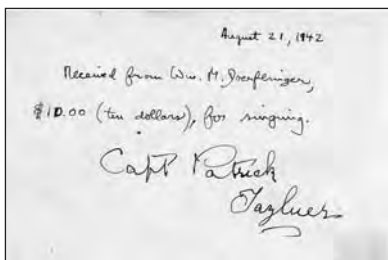 August 21, 1942
Received from Wm. M. Doerflinger,
$10.00 (ten dollars), for singing.
Capt Patrick
Tayluer